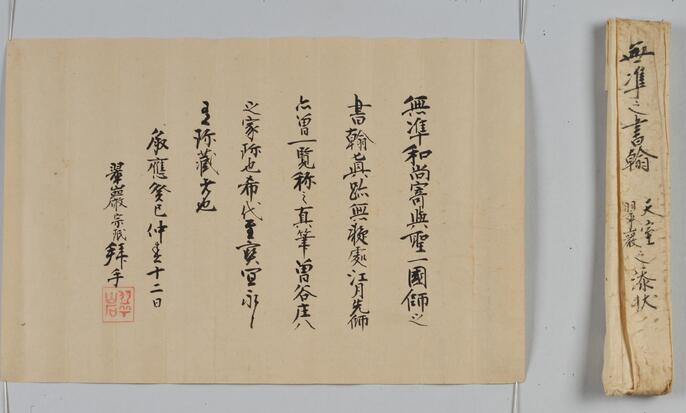 無準和尚寄與聖一國師之
書翰真跡無疑處江月先師
亦曽一覧称之真筆曽谷庄八
之家珎也希代至寳宜永〻
珎藏者也
承應癸巳仲春十二日
翠巖宗珉拜手
翠岩
無準之書翰
天室
翠巖之添状